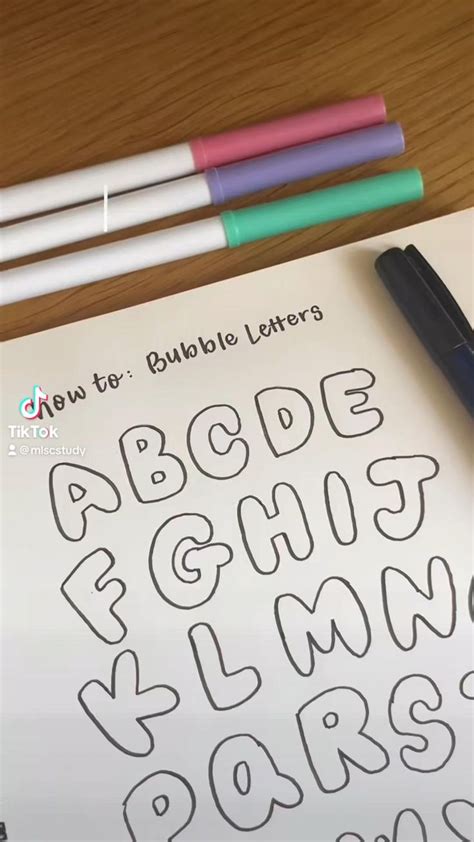 how to: Bubble Letters
TikTok
@mlscstudy
ABCDE
FGHIJ
KLMN
PQRS